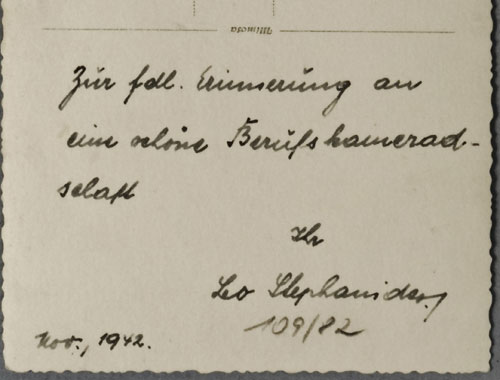 Mimosa
Zür fdl. Erinnerung an
eine schöne Berufskamerad-
schaft
Ihr
Leo
109/82
Nov., 1942.